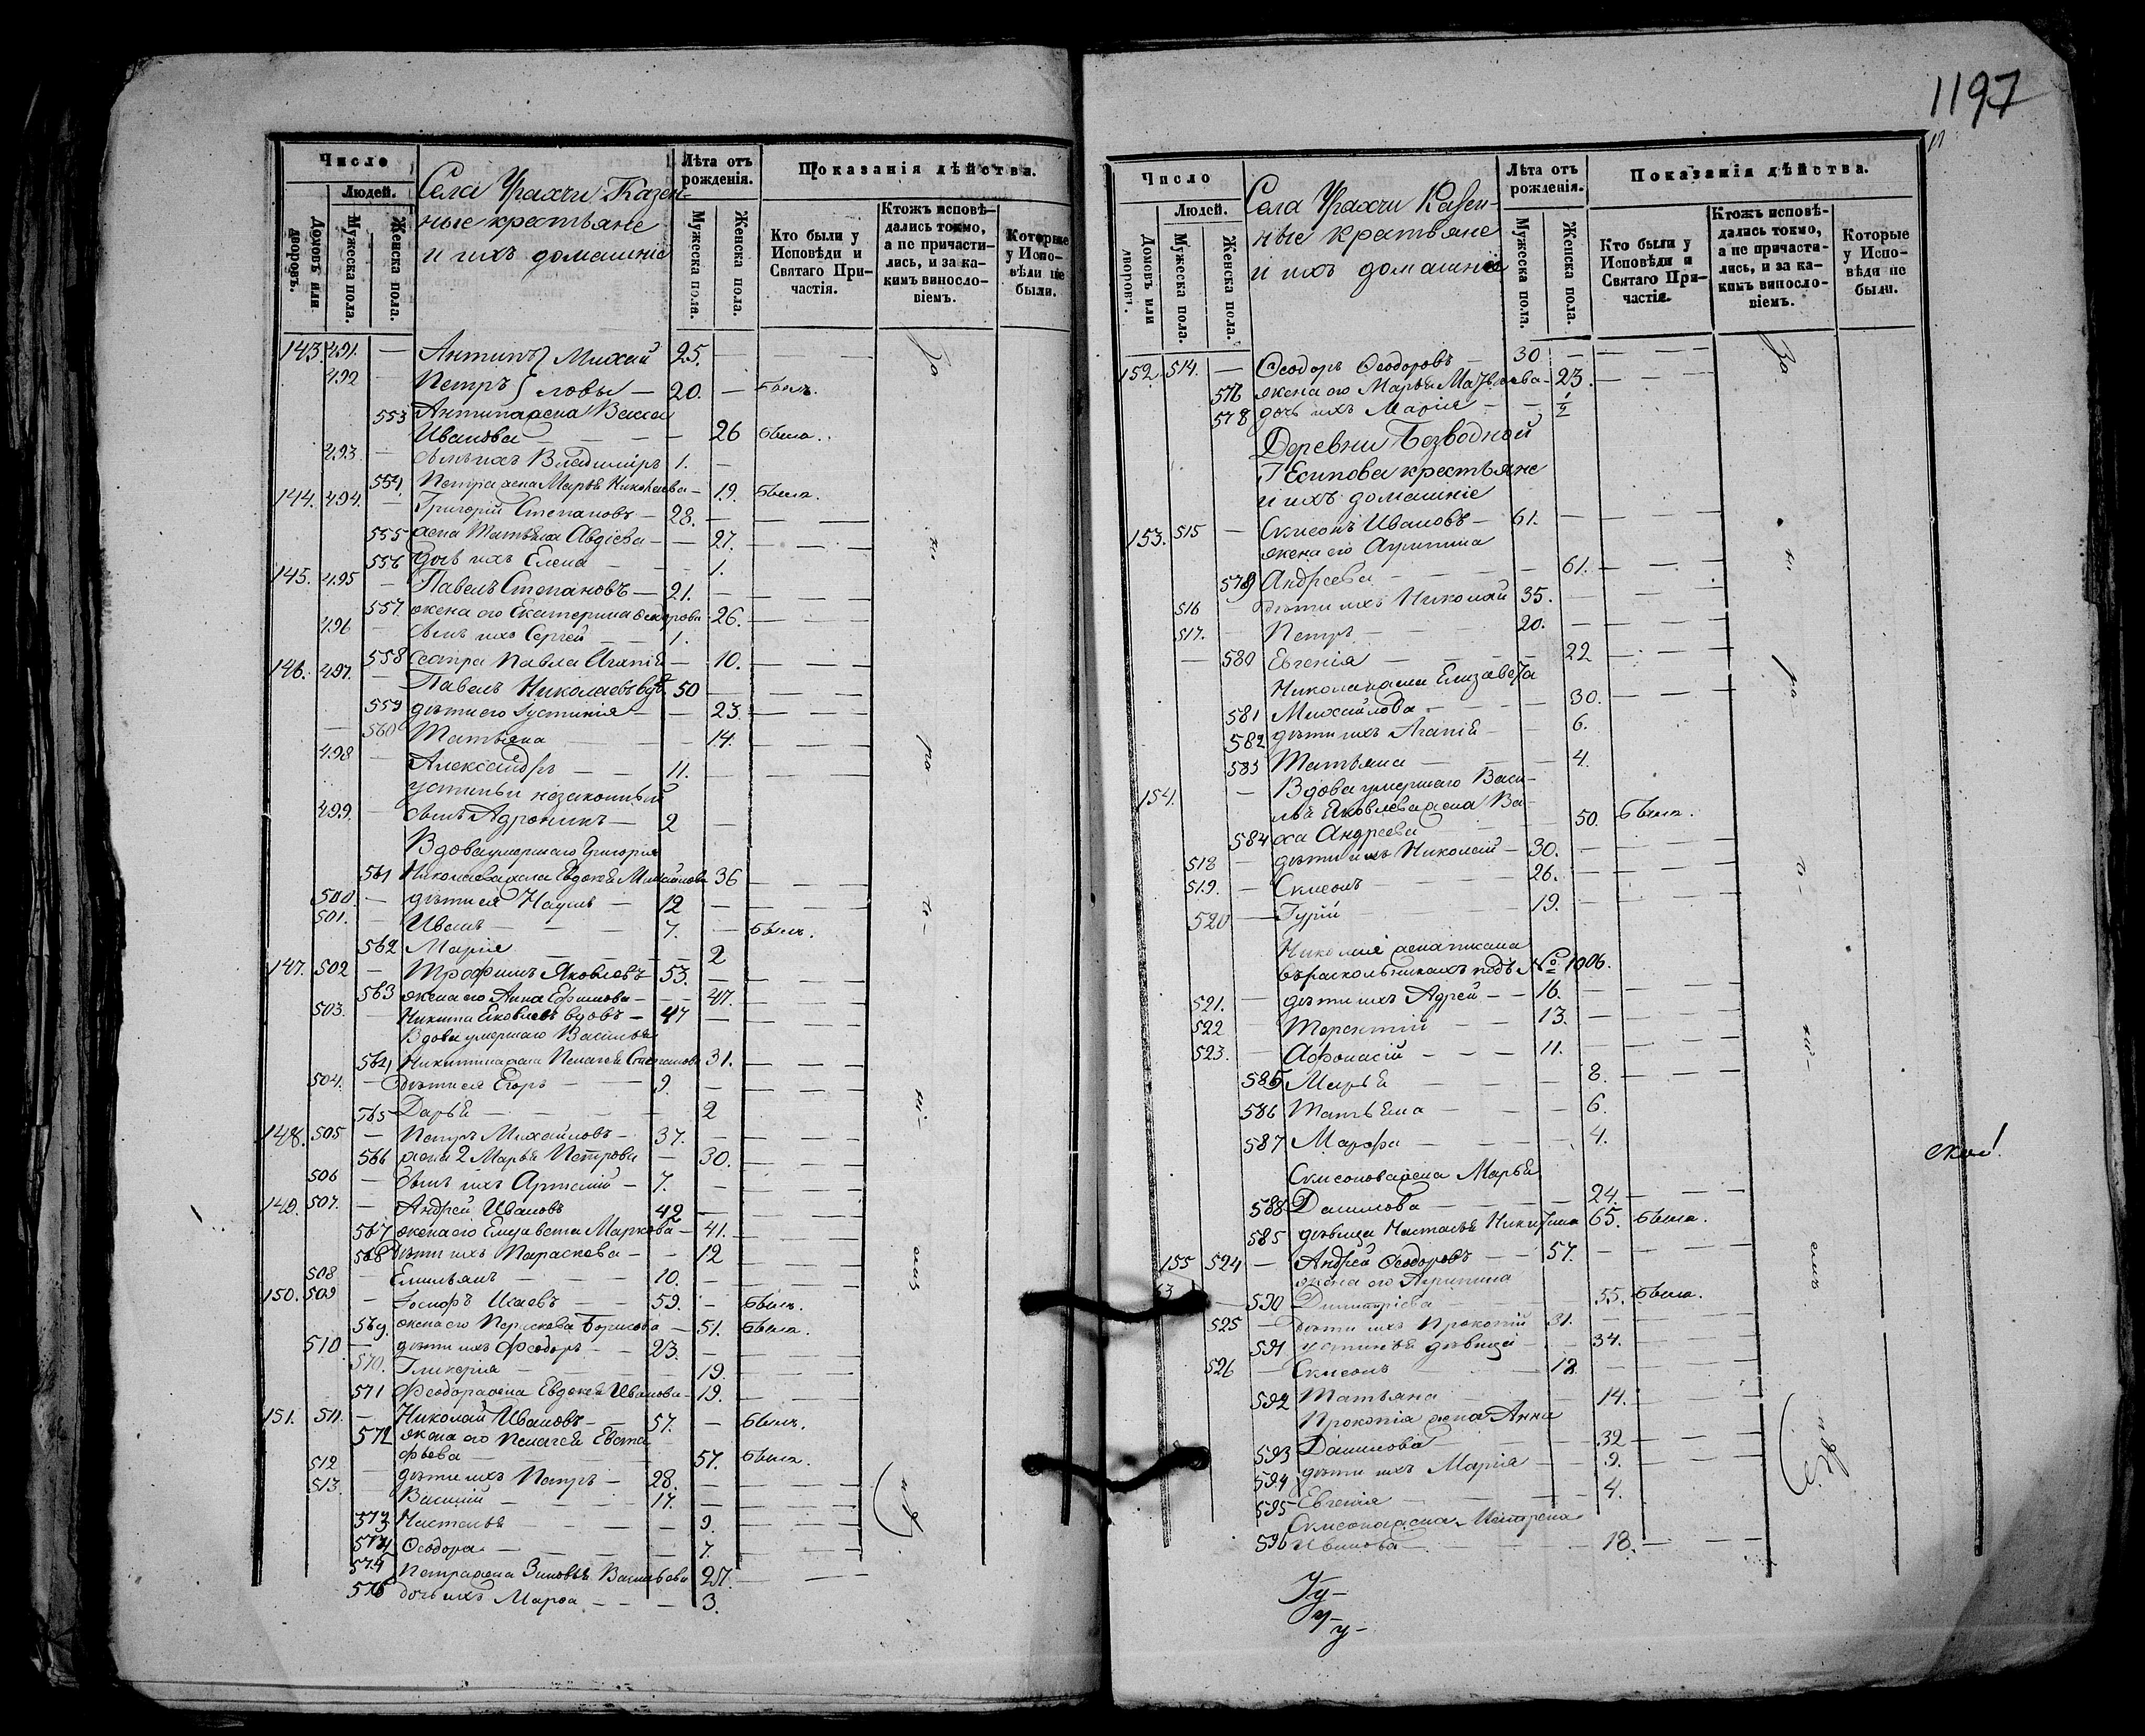 1197
Число
Людей.
Домовъ или дворовъ.
Мужеска пола.
Женска пола.
Села Урахчи Казен-
ные крестьяне
и ихъ домашніе
Лѣта отъ рожденія.
Мужеска пола.
Женска пола.
Показанія дѣйства.
Кто были у Исповѣди и Святаго Причастія.
Ктожъ исповѣ-
дались токмо,
а не причасти-
лись, и за ка-
кимъ винослo-
віемъ.
Которые
у Испо-
вѣди не
были.
143 491. — Антипъ } Михай 25. —
492 — Петръ } ловы — 20. — былъ.
553 Антипа жена Васса
Иванова — 26 была.
493. — сынъ ихъ Владиміръ 1. —
554. Петра жена Марья Николаева — 19. была.
144. 494. — Григорій Степановъ — 28. —
555 жена Татьяна Авдіева — 27. —
556 дочь ихъ Елена — 1.
145. 495 — Павелъ Степановъ — 21. —
557. жена его Екатерина 26. —
496 — сынъ ихъ Сергей — 1. —
558 сестра Павла Агапія — 10. —
146. 497. — Павелъ Николаевъ вдъ 50 —
559 дѣти его Іустинія — 23. —
560 Татьяна — 14. —
498 — Александръ — 11. —
Устиньи незаконный
499. — сынъ Адроникъ — 2 —
Вдова умершаго Григорія
561 Николаева жена Евдокія Михайлова 36 —
500. — дѣти ея Наумъ — 12 —
501. — Иванъ — 7. — былъ.
562 Марія — 2
147. 502 — Трофимъ Яковлевъ — 53. —
563 жена его Анна Ефимова — 47. —
503. — Никита Яковлевъ вдовъ — 47 —
Вдова умершаго Василья
564 Никитина жена Пелагея Степанова 31. —
504. — дѣти ея Егоръ — 9. —
565 Дарья — 2
148. 505 — Петръ Михайловъ — 37. —
566 жена 2 Марья Петрова — 30. —
506 — сынъ ихъ Артемій — 7. —
149. 507. — Андрей Ивановъ 42 —
567 жена его Елизавета Маркова — 41. —
568 дѣти ихъ Параскева — 12
508 — Емильянъ — 10. —
150. 509 — Іосифъ Исаевъ — 59. — былъ.
569. жена его Параскева Борисова — 51. была.
510 — дѣти ихъ Феодоръ — 23. —
570. Гликерія — 19.
571 Феодора жена Евдокія Иванова — 19. —
151. 511. — Николай Ивановъ — 57. — былъ.
572 жена его Пелагея Евста
фьева — 57. была.
512 — дѣти ихъ Петръ — 28. —
513. — Василій — 17. —
573 Настасья — 9. —
574 Ѳеодора — 7. —
Петра жена Зиновья Васильева
576 дочь ихъ Марѳа — 3.
За
ни
ра
ні-
емъ
Число
Людей.
Домовъ или дворовъ.
Мужеска пола.
Женска пола.
Села Урахчи Казен-
ные крестьяне
и ихъ домашніе
Лѣта отъ рожденія.
Мужеска пола.
Женска пола.
Показанія дѣйства.
Кто были у Исповѣди и Святаго Причастія.
Ктожъ исповѣ-
дались токмо,
а не причасти-
лись, и за ка-
кимъ винослo-
віемъ.
Которые
у Испо-
вѣди не
были.
152. 514. — Ѳеодоръ Ѳеодоровъ — 30 —
576 жена его Марья Матвѣева — 23. —
578 дочь ихъ Марія — 1/2
Деревни Безводной
Г Есипова крестьяне
и ихъ домашніе
153. 515 — Симеонъ Ивановъ — 61. —
жена его Агрипина
579 Андреева — 61. —
516 дѣти ихъ Николай 35. —
517. — Петръ — 20. —
— 580 Евгенія — 22 —
Николая жена Елизавета
581 Михайлова — 30. —
582 дѣти ихъ Агапія — 6.
583 Татьяна — 4.
154. — Вдова умершаго Васи-
лья Яковлева жена Ва-
584 сса Андреева — 50. была.
518 — дѣти ихъ Николай — 30. —
519. — Симеонъ — 26. —
520 — Гурій — 19. —
Николая жена писана
въ раскольникахъ подъ № 1006.
521. — дѣти ихъ Адрей — 16. —
522 — Терентій — 13. —
523. — Афонасій — 11. —
585 Марья — 8. —
586 Татьяна — 6. —
587 Марфа — 4. —
Симеонова жена Марья
588 Данилова — 24. —
585 дѣвица Настасья Никитина 65. была.
155 524 — Андрей Ѳеодоровъ — 57. —
жена его Агрипина
— 590 Димитріева — 55. была.
525 — дѣти ихъ Прокопій 31. —
591 Устинья дѣвица — 34. —
526 — Симеонъ — 18. —
592 Татьяна — 14. —
Прокопія жена Анна
593 Данилова — 32 —
594 дѣти ихъ Марія — 9. —
595 Евгенія — 4. —
Симеона жена Матрена
596 Иванова — 18. —
За
ни
ра
ні-
емъ